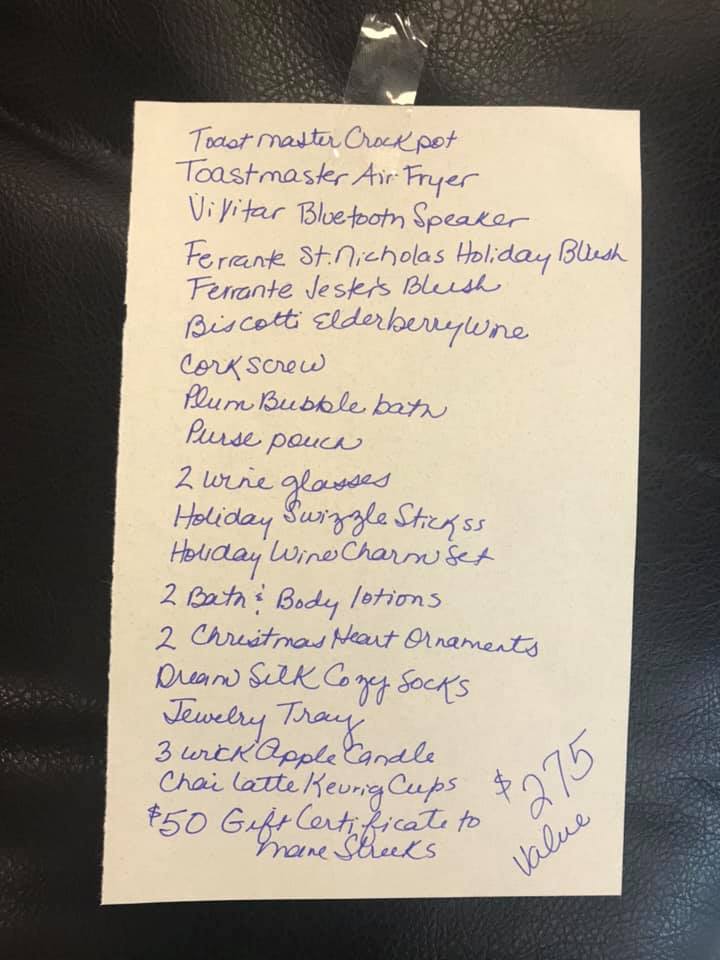 Toastmaster Crockpot
Toastmaster Air Fryer
ViVitar Bluetooth Speaker
Ferrante St. Nicholas Holiday Blush
Ferrante Jester's Blush
Biscotti Elderberry Wine
Corkscrew
Plum Bubble bath
Purse pouch
2 wine glasses
Holiday Swizzle Stickss
Holiday Wine Charm Set
2 Bath & Body lotions
2 Christmas Heart Ornaments
Dream Silk Cozy Socks
Jewelry Tray
3 wick Apple Candle
Chai Latte Keurig Cups
$50 Gift Certificate to
Mane Streeks
$275
Value